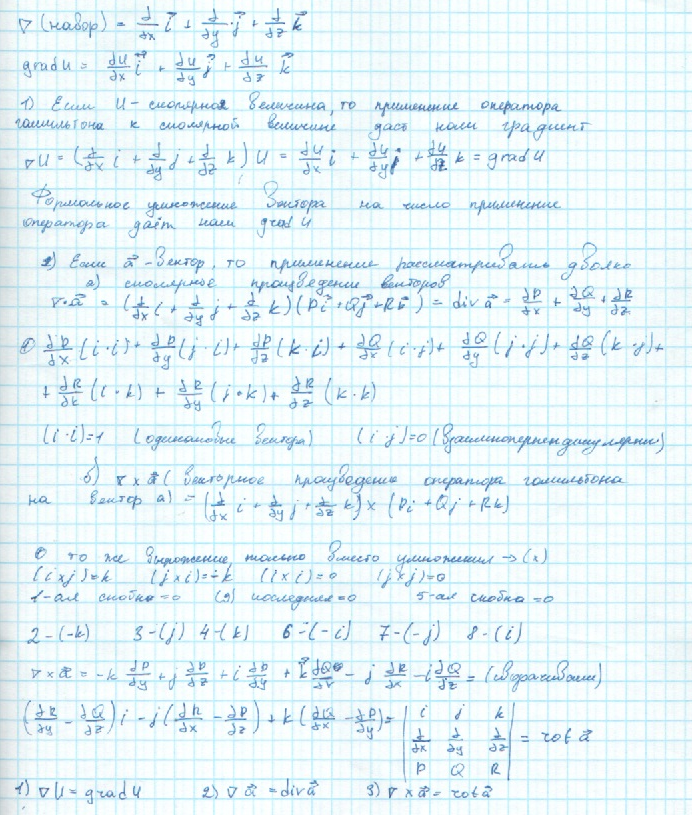 ∇ (набор) = ∂/∂x i⃗ + ∂/∂y · j⃗ + ∂/∂z k⃗
grad U = ∂U/∂x i⃗ + ∂U/∂y j⃗ + ∂U/∂z k⃗
1) Если U - сколярная величина, то применение оператора
гамильтона к сколярной величине даст нам градиент
∇U = (∂/∂x i + ∂/∂y j + ∂/∂z k) U = ∂U/∂x i + ∂U/∂y j + ∂U/∂z k = grad U
Формальное умножение вектора на число применение
оператора даёт нам grad U
2) Если a⃗ - вектор, то применение рассматривать двояко
а) сколярное произведение векторов
∇·a⃗ = (∂/∂x i + ∂/∂y j + ∂/∂z k)(Pi⃗ + Qj⃗ + Rk⃗) = div a⃗ = ∂P/∂x + ∂Q/∂y + ∂R/∂z
∂P/∂x (i·i) + ∂P/∂y (j·i) + ∂P/∂z (k·i) + ∂Q/∂x (i·j) + ∂Q/∂y (j·j) + ∂Q/∂z (k·j) +
+ ∂R/∂k (i·k) + ∂R/∂y (j·k) + ∂R/∂z (k·k)
(i·i)=1 (одинаковые вектора) (i·j)=0 (взаимноперпендикулярны)
б) ∇×a⃗ (векторное произведение оператора гамильтона
на вектор a) = (∂/∂x i + ∂/∂y j + ∂/∂z k) × (Pi + Qj + Rk)
то же выражение, только вместо умножения → (×)
(i×j)=k (j×i)=-k (i×i)=0 (j×j)=0
1-ая скобка=0 (9) последняя=0 5-ая скобка=0
2-(-k) 3-(j) 4-(k) 6-(-i) 7-(-j) 8-(i)
∇×a⃗ = -k ∂P/∂y + j ∂P/∂z + i ∂P/∂y + k⃗ ∂Q/∂x - j ∂R/∂x - i ∂Q/∂z = (сворачиваем)
(∂R/∂y - ∂Q/∂z) i - j (∂R/∂x - ∂P/∂z) + k (∂Q/∂x - ∂P/∂y) = | i j k |
| ∂/∂x ∂/∂y ∂/∂z | = rot a⃗
| P Q R |
1) ∇U = grad U 2) ∇ a⃗ = div a⃗ 3) ∇ × a⃗ = rot a⃗